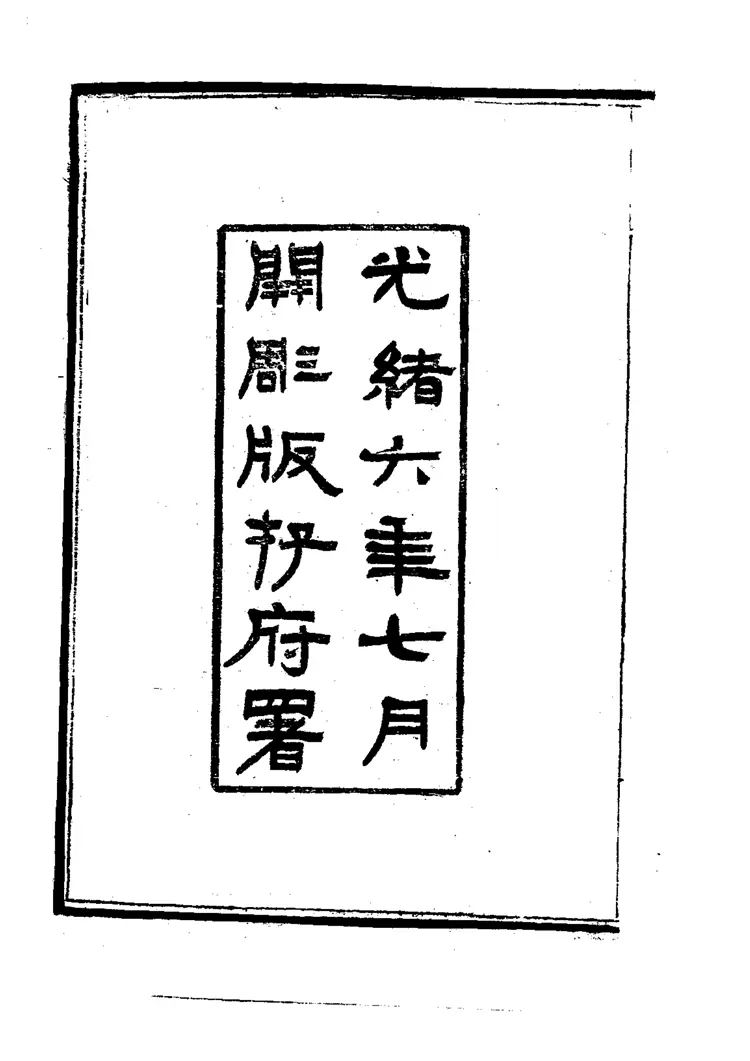 光緒六年七月
開彫版存府署